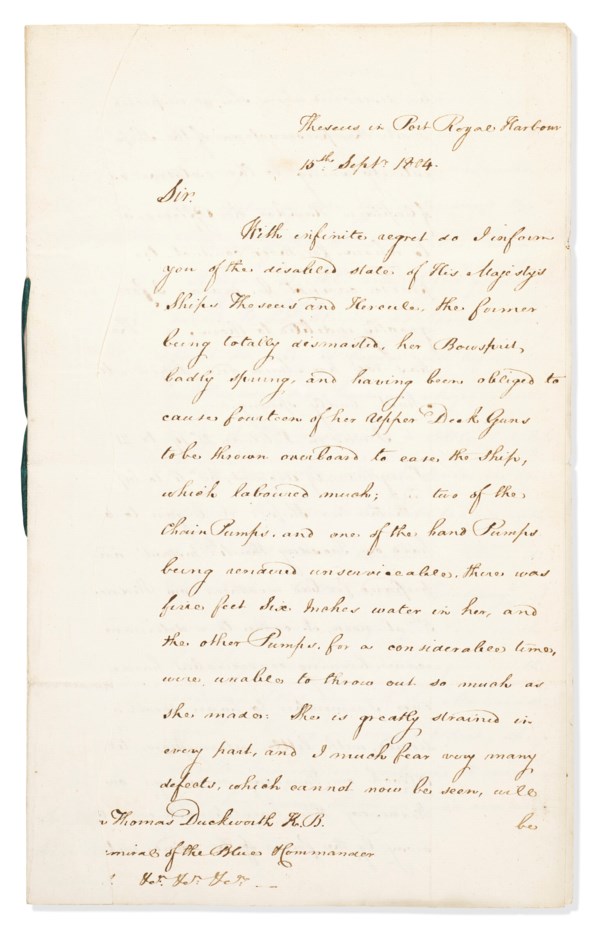 Theseus in Port Royal Harbour
15th. Septr. 1804.
Sir.
With infinite regret do I inform
you of the disabled state of His Majesty's
Ships Theseus and Hercule, the former
being totally desmasted, her Bowsprit,
badly sprung, and having been obliged to
cause fourteen of her Upper Deck Guns
to be thrown overboard to ease the Ship,
which laboured much; two of the
Chain Pumps, and one of the hand Pumps
being rendered unserviceable, there was
five feet Six Inches water in her, and
the other Pumps, for a considerable time,
were unable to throw out so much as
she made: She is greatly strained in
every part, and I much fear very many
defects, which cannot now be seen, will
be
Thomas Duckworth K.B.
miral of the Blue Commander
&cr. &cr. &cr.